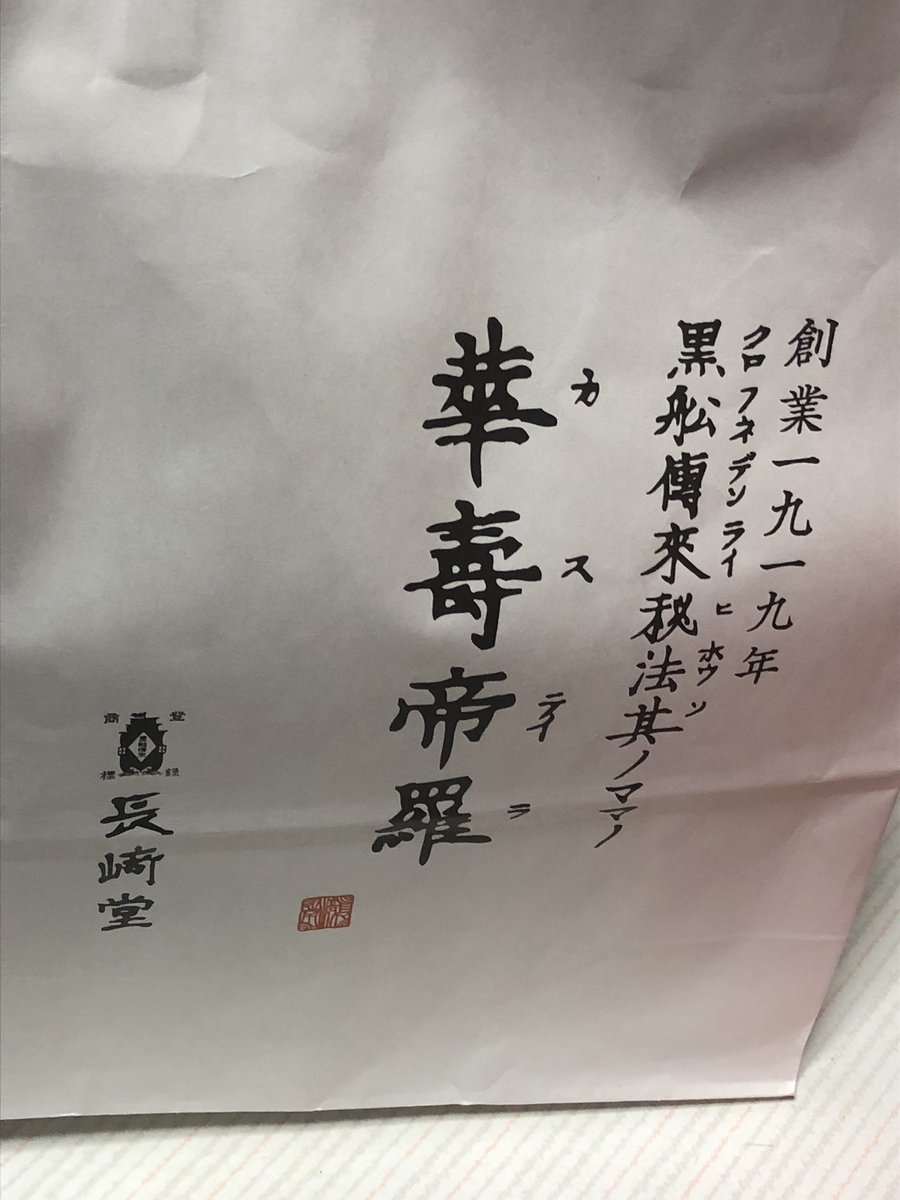 創業一九一九年
クロフネデンライヒホウソ
黒舩傳來秘法其ノママノ
カステイラ
華壽帝羅
登録
商標
長﨑堂